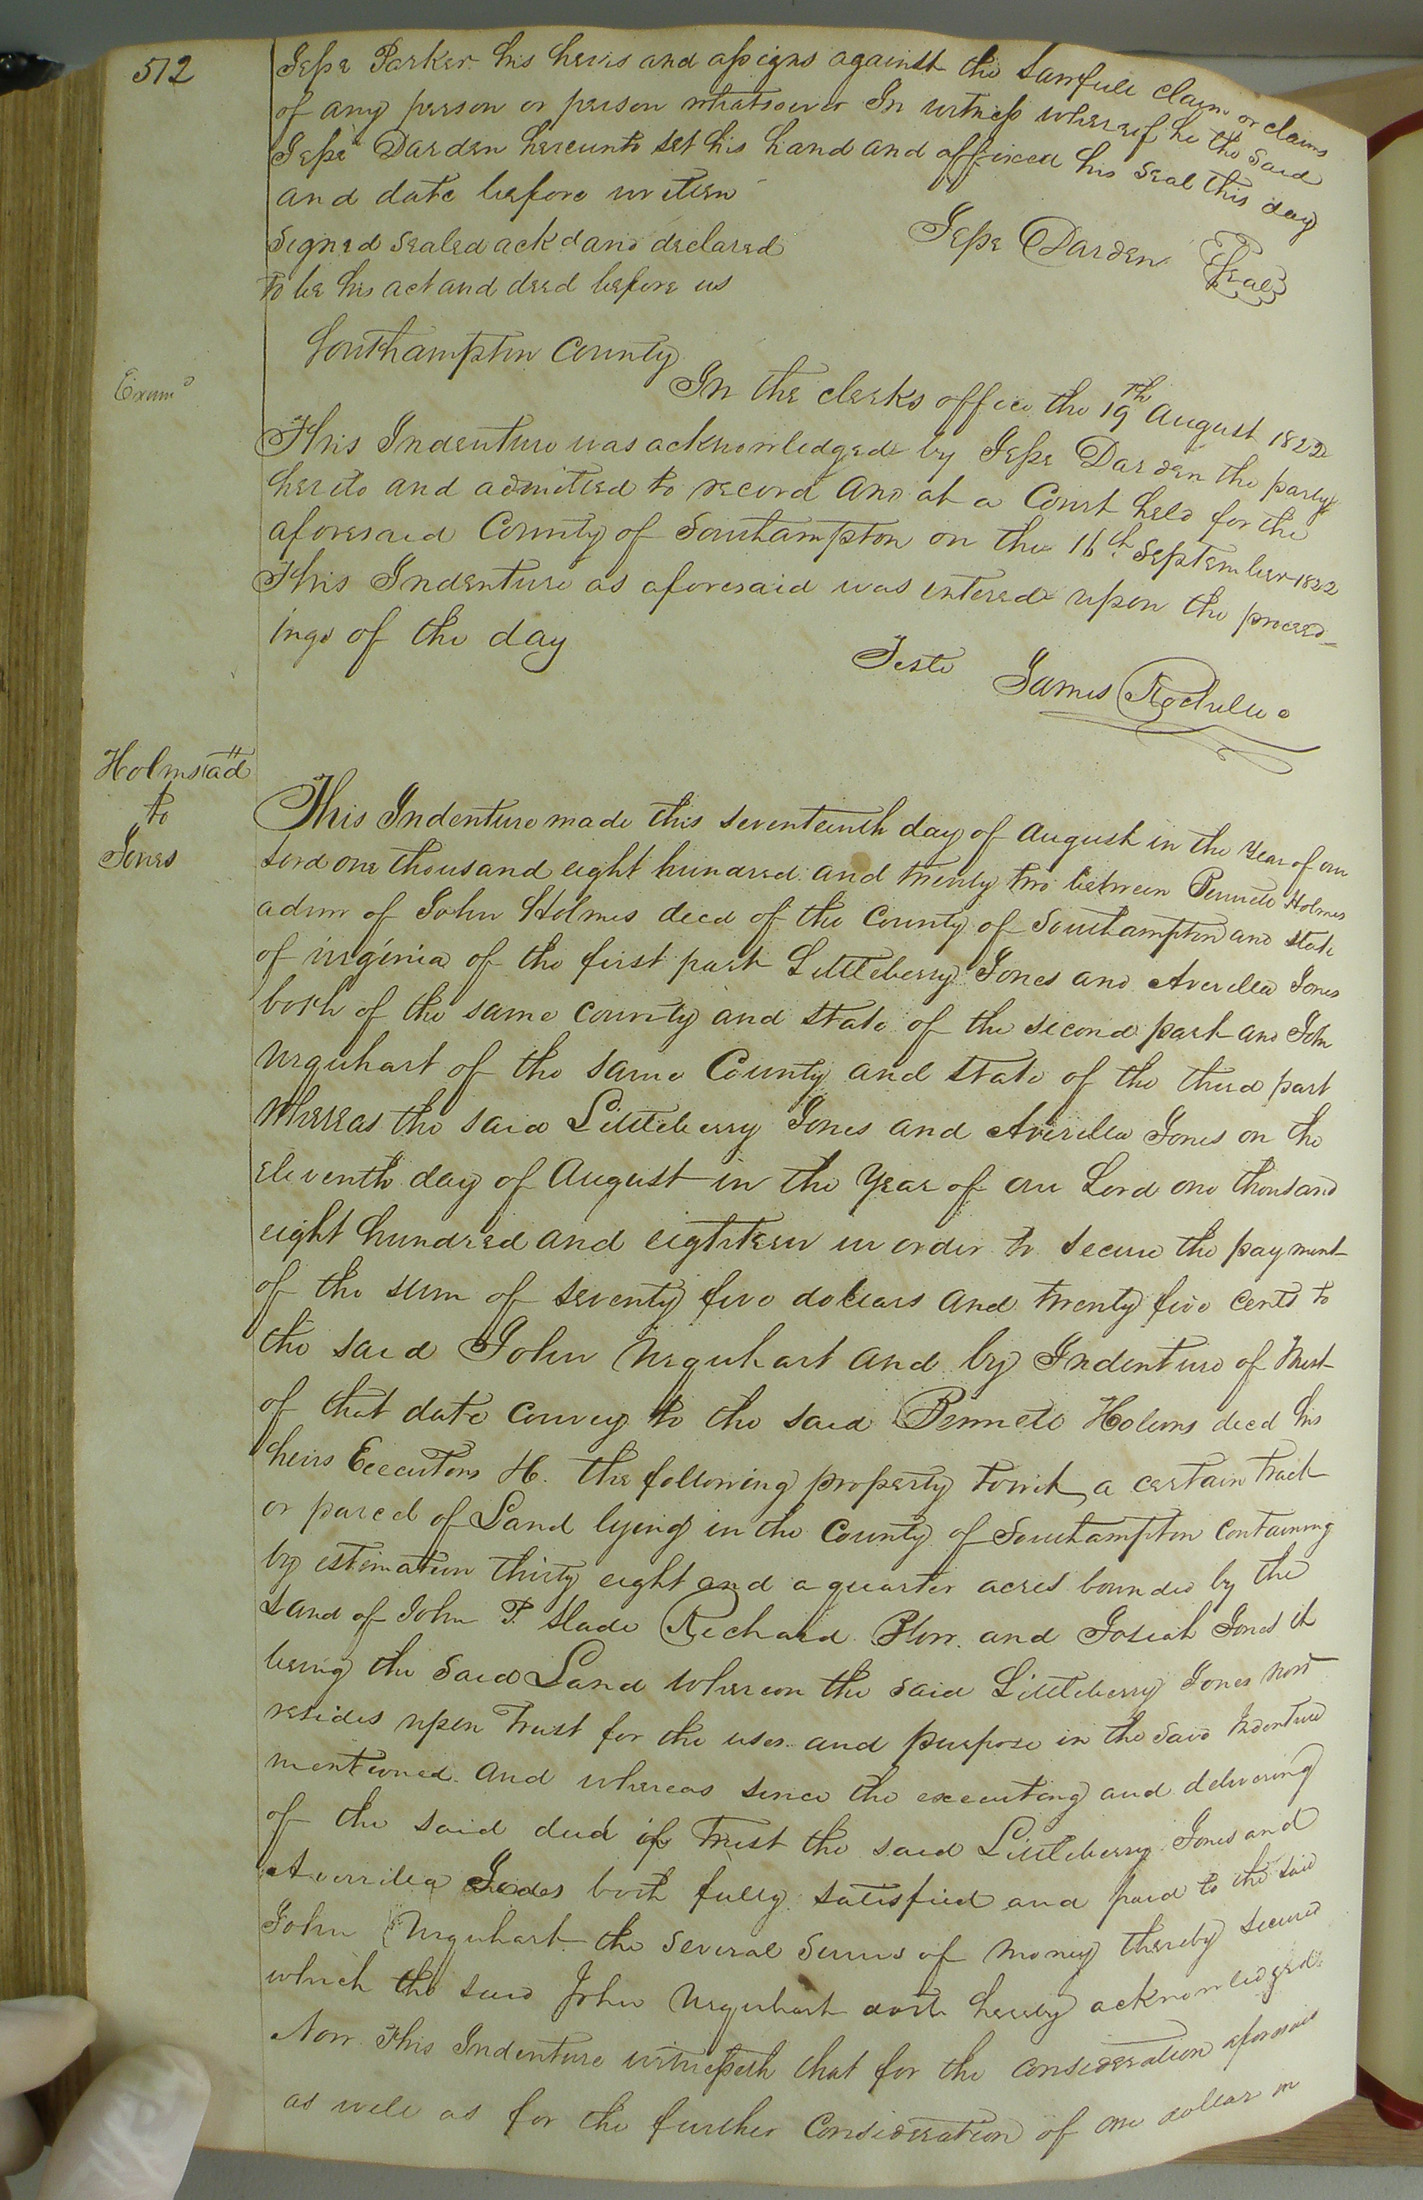 512
Jesse Parker his heirs and assigns against the Lawfull claim or claims
of any person or person whatsoever In witness whereof he the said
Jesse Darden hereunto set his hand and affixced his seal this day
and date before written
Signed sealed ackd and declared
to be his act and deed before us
Jesse Darden Seal
Southampton County
Exam d
In the clerks office the 19th August 1822
This Indenture was acknowledged by Jesse Darden the party
hereto and admitted to record And at a Court held for the
aforesaid County of Southampton on the 16th September 1822
This Indenture as aforesaid was entered upon the proceed-
ings of the day
Teste James Rochelle
Holms ad
to
Jones
This Indenture made this seventeenth day of August in the Year of our
Lord one thousand eight hundred and twenty two between Holmes
admr of John Holmes decd of the County of Southampton and State
of virginia of the first part Littleberry Jones and Averilla Jones
both of the same County and State of the second part and John
Urquhart of the same County and State of the third part
Whereas the said Littleberry Jones and Averilla Jones on the
eleventh day of August in the Year of our Lord one thousand
eight hundred and eighteen in order to secure the payment
of the sum of seventy five dollars and twenty five cents to
the said John Urquhart and by Indenture of Trust
of that date convey to the said Holems decd his
heirs Executors &c. the following property towit, a certain tract
or parcel of Land lying in the County of Southampton containing
by estimation thirty eight and a quarter acres bounded by the
Land of John T. Slade Richard and Josiah Jones it
being the said Land whereon the said Littleberry Jones now
resides upon Trust for the uses and purpose in the said Indenture
mentioned. And whereas since the executing and delivering
of the said deed of Trust the said Littleberry Jones and
Averrilla Jones both fully satisfied and paid to the said
John Urquhart the several sums of money thereby secured
which the said John Urquhart doth hereby acknowledged.
Now This Indenture witnesseth that for the consideration aforesaid
as well as for the further Consideration of one dollar in